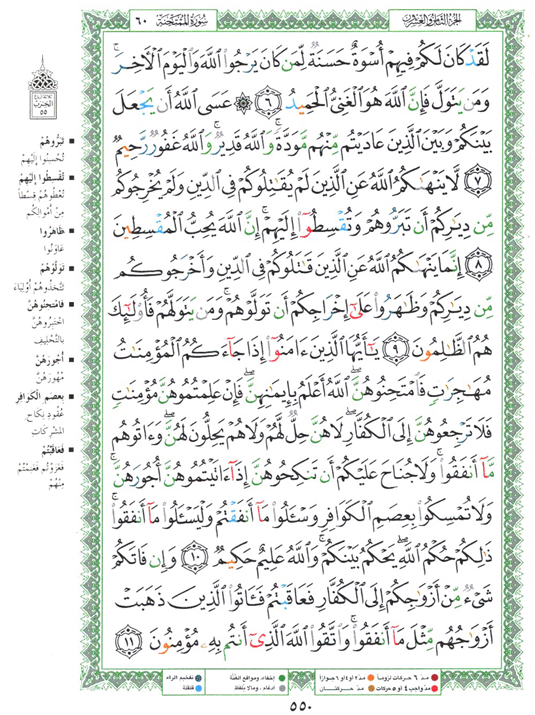 سُورَةُ المُمْتَحنَةِ ٦٠
الجزء الثامن والعشرون
لَقَدْ كَانَ لَكُمْ فِيهِمْ أُسْوَةٌ حَسَنَةٌ لِّمَن كَانَ يَرْجُوا اللَّهَ وَالْيَوْمَ الْآخِرَ ۚ
وَمَن يَتَوَلَّ فَإِنَّ اللَّهَ هُوَ الْغَنِيُّ الْحَمِيدُ ٦ ۞ عَسَى اللَّهُ أَن يَجْعَلَ
بَيْنَكُمْ وَبَيْنَ الَّذِينَ عَادَيْتُم مِّنْهُم مَّوَدَّةً ۚ وَاللَّهُ قَدِيرٌ ۚ وَاللَّهُ غَفُورٌ رَّحِيمٌ
٧ لَّا يَنْهَاكُمُ اللَّهُ عَنِ الَّذِينَ لَمْ يُقَاتِلُوكُمْ فِي الدِّينِ وَلَمْ يُخْرِجُوكُم
مِّن دِيَارِكُمْ أَن تَبَرُّوهُمْ وَتُقْسِطُوا إِلَيْهِمْ ۚ إِنَّ اللَّهَ يُحِبُّ الْمُقْسِطِينَ
٨ إِنَّمَا يَنْهَاكُمُ اللَّهُ عَنِ الَّذِينَ قَاتَلُوكُمْ فِي الدِّينِ وَأَخْرَجُوكُم
مِّن دِيَارِكُمْ وَظَاهَرُوا عَلَىٰ إِخْرَاجِكُمْ أَن تَوَلَّوْهُمْ ۚ وَمَن يَتَوَلَّهُمْ فَأُولَٰئِكَ
هُمُ الظَّالِمُونَ ٩ يَا أَيُّهَا الَّذِينَ ءَامَنُوا إِذَا جَاءَكُمُ الْمُؤْمِنَاتُ
مُهَاجِرَاتٍ فَامْتَحِنُوهُنَّ ۖ اللَّهُ أَعْلَمُ بِإِيمَانِهِنَّ ۖ فَإِنْ عَلِمْتُمُوهُنَّ مُؤْمِنَاتٍ
فَلَا تَرْجِعُوهُنَّ إِلَى الْكُفَّارِ ۖ لَا هُنَّ حِلٌّ لَّهُمْ وَلَا هُمْ يَحِلُّونَ لَهُنَّ ۖ وَءَاتُوهُم
مَّا أَنفَقُوا ۚ وَلَا جُنَاحَ عَلَيْكُمْ أَن تَنكِحُوهُنَّ إِذَا ءَاتَيْتُمُوهُنَّ أُجُورَهُنَّ ۚ
وَلَا تُمْسِكُوا بِعِصَمِ الْكَوَافِرِ وَسْـَٔلُوا مَا أَنفَقْتُمْ وَلْيَسْـَٔلُوا مَا أَنفَقُوا ۚ
ذَٰلِكُمْ حُكْمُ اللَّهِ ۖ يَحْكُمُ بَيْنَكُمْ ۚ وَاللَّهُ عَلِيمٌ حَكِيمٌ ١٠ وَإِن فَاتَكُمْ
شَيْءٌ مِّنْ أَزْوَاجِكُمْ إِلَى الْكُفَّارِ فَعَاقَبْتُمْ فَـَٔاتُوا الَّذِينَ ذَهَبَتْ
أَزْوَاجُهُم مِّثْلَ مَا أَنفَقُوا ۚ وَاتَّقُوا اللَّهَ الَّذِي أَنتُم بِهِ مُؤْمِنُونَ ١١
الحزب
٥٥
■ تَبَرُّوهُمْ
تُحْسِنُوا إِلَيْهِمْ
■ تُقْسِطُوا إِلَيْهِمْ
تُعْطُوهُمْ قِسْطاً
مِنْ أَمْوَالِكُم
■ ظَاهَرُوا
عَاوَنُوا
■ تَوَلَّوْهُمْ
تَتَّخِذُوهُمْ أَوْلِيَاءَ
■ فَامْتَحِنُوهُنَّ
اخْتَبِرُوهُنَّ
بِالتَّحْلِيفِ
■ أُجُورَهُنَّ
مُهُورَهُنَّ
■ بِعِصَمِ الكَوَافِرِ
عُقُودِ نِكَاحِ
المُشْرِكَاتِ
■ فَعَاقَبْتُمْ
فَغَزَوْتُمْ فَغَنِمْتُمْ
مِنْهُمْ
مدّ ٦ حركات لزوماً مدّ ٢ او ٤ او ٦ جوازاً
إخفاء، ومواقع الغُنَّة تفخيم الراء
مدّ واجب ٤ او ٥ حركات مدّ حركتان
ادغام، وما لا يُلفظ قلقلة
٥٥٠